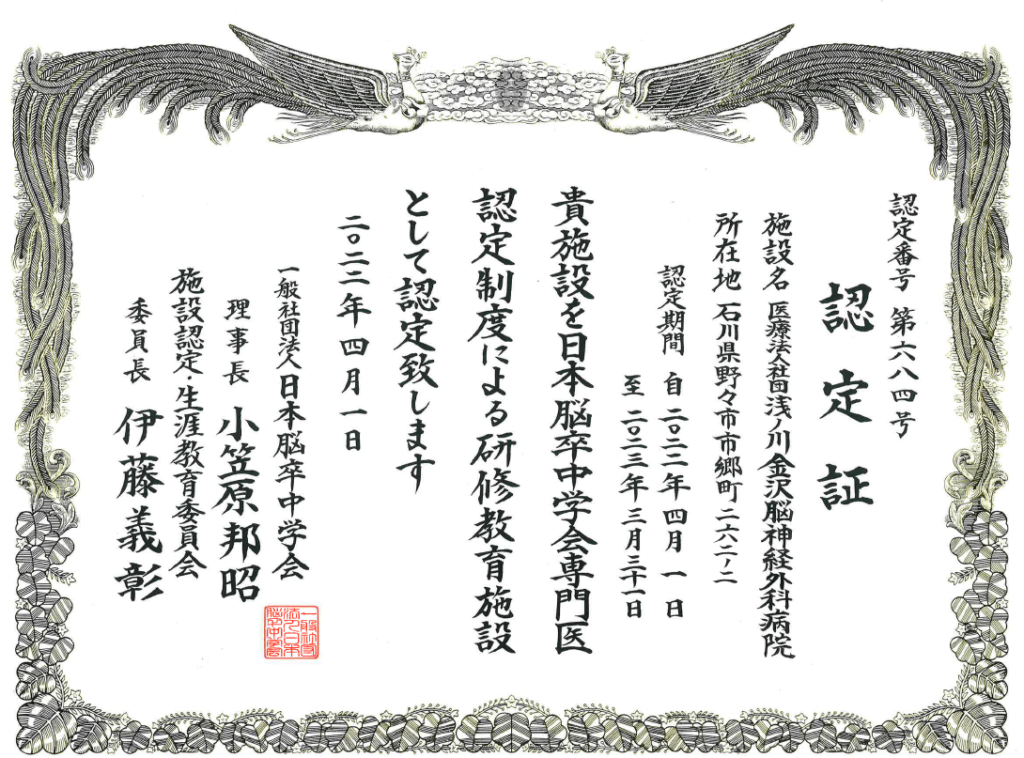 認定番号 第六八四号
認定証
施設名 医療法人社団浅ノ川金沢脳神経外科病院
所在地 石川県野々市市郷町二六二ノ二
認定期間 自 二〇二二年四月一日
至 二〇二三年三月三十一日
貴施設を日本脳卒中学会専門医
認定制度による研修教育施設
として認定致します
二〇二二年四月一日
一般社団法人日本脳卒中学会
理事長 小笠原邦昭
施設認定・生涯教育委員会
委員長 伊藤義彰